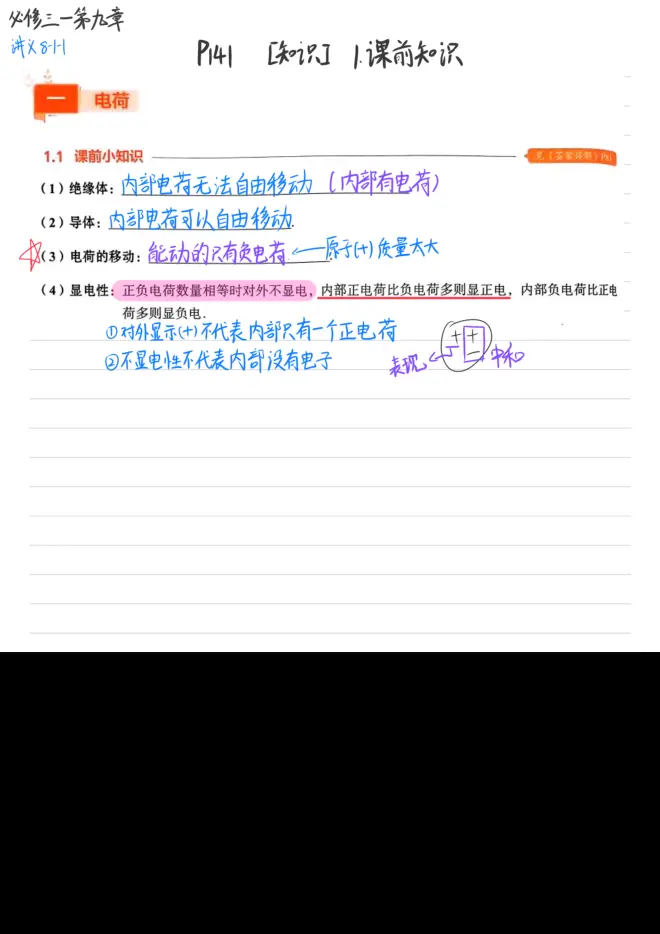 必修三一第九章
讲义8-1-1
P141 [知识] 1.课前知识
一 电荷
1.1 课前小知识
见《答案详解》P81
(1) 绝缘体：内部电荷无法自由移动（内部有电荷）
(2) 导体：内部电荷可以自由移动.
(3) 电荷的移动：能动的只有负电荷 ← 原子(+)质量太大
(4) 显电性：正负电荷数量相等时对外不显电，内部正电荷比负电荷多则显正电，内部负电荷比正电
荷多则显负电.
①对外显示(+)不代表内部只有一个正电荷
②不显电性不代表内部没有电子
+ +
−
表现 中和